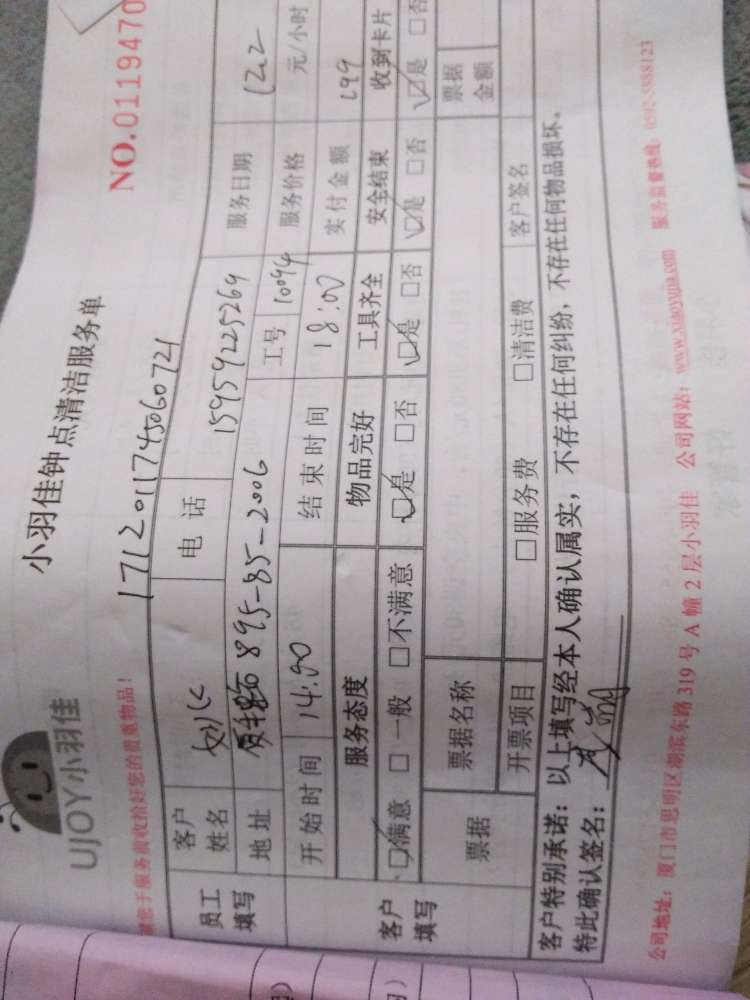 UJOY小羽佳
小羽佳钟点清洁服务单
NO.0119470
请您于服务前收拾好您的贵重物品!
1712011745060721
员工填写
客户姓名
电话 15959225269
服务日期 12.2
地址 895-85-2006
工号 10094
服务价格 元/小时
开始时间 14:00
结束时间 18:00
实付金额 199
客户填写
服务态度 物品完好 工具齐全 安全结束 收到卡片
☑满意 □一般 □不满意 ☑是 □否 ☑是 □否 ☑是 □否 ☑是 □否
票据
票据名称
票据金额
开票项目 □服务费 □清洁费 客户签名
客户特别承诺：以上填写经本人确认属实，不存在任何纠纷，不存在任何物品损坏。
特此确认签名：
公司地址：厦门市思明区湖滨东路319号A幢2层小羽佳 公司网站：www.xiaoyujia.com 服务监督热线：0592-5888123